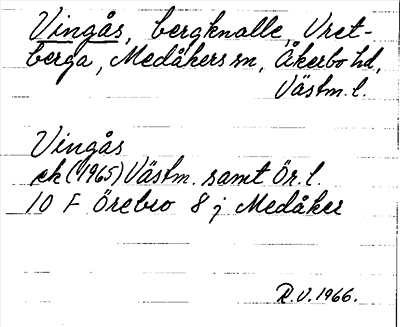 Vingås, bergknalle, Vret-
berga, Medåkers sn, Åkerbo hd,
Västm. l.
Vingås
ek (1965) Västm. samt Ör. l.
10 F Örebro 8 j Medåker
R.V. 1966.